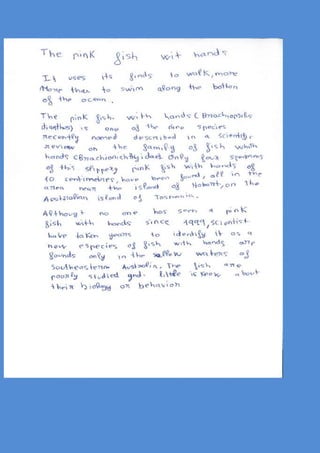 The pink fish wit hands
It uses its finds to walk, more
More than to swim along the botton
of the ocean.
The pink fish with hands (Brachiopsilis
dianthus) is one of the nine species
recently named described in a scientific
Review on the family of fish with
hands (Brachionichthyidae). Only four specimens
of this slippery pink fish with hands of
10 centimetres, have been found, all in the
area near the island of Hobart, on the
Australian island of Tasmania.
Although no one has seen a pink
fish with hands since 1999, scientist
have taken years to identify it as a
new especies of fish with hands are
founds only in the shallow waters of
Southeastern Australia. The fish are
poorly studied and. Little is know about
their biology or behavion